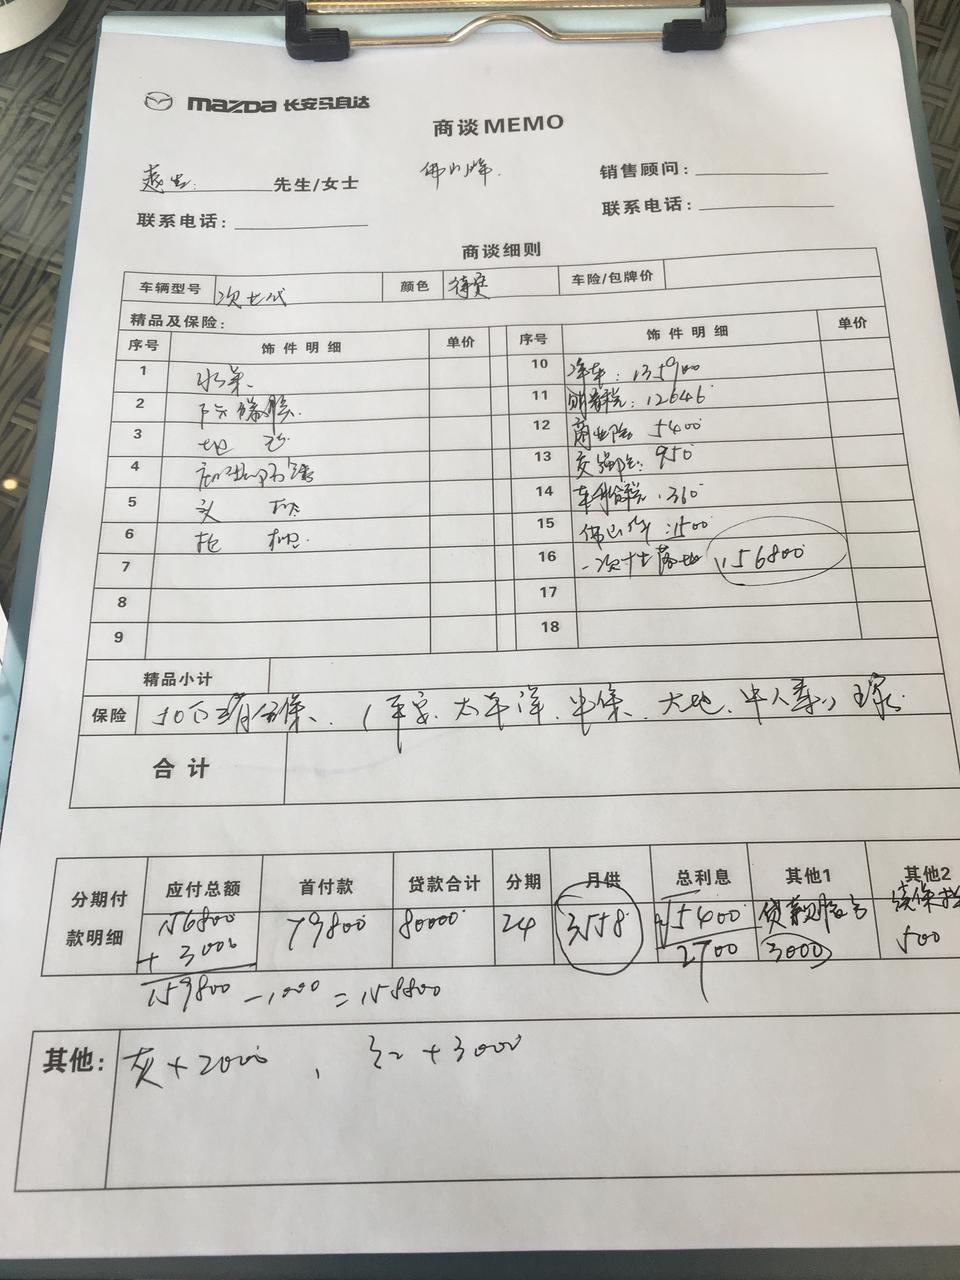 mazda 长安马自达
商谈MEMO
先生/女士 佛山牌. 销售顾问：
联系电话： 联系电话：
商谈细则
车辆型号 次七代 颜色 待定 车险/包牌价
精品及保险：
序号 饰件明细 单价 序号 饰件明细 单价
1 10 净车：135900
2 11 购置税：12646
3 地 12 商业险 5400
4 13 交强险：950
5 头枕 14 车船税：360
6 抱枕 15 佛山牌：1500
7 16 一次性落地 156800
8 17
9 18
精品小计
保险 （平安、太平洋、大地、中人寿）
合计
分期付款明细 应付总额 首付款 贷款合计 分期 月供 总利息 其他1 其他2
156800 79800 80000 24 3558 5400 贷款服务 续保押
+ 3000 2700 3000 500
159800 - 1000 = 158800
其他： 灰+2000 , 红+3000